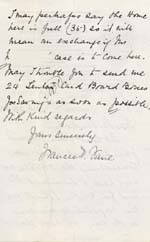 I may perhaps say the Home
here is full (36) so it will
mean an exchange if Mrs
case is to come here.
May I trouble you to send me
24 Card Board Boxes
for Savings as soon as possible.
With Kind regards
Yours sincerely
Frances M.